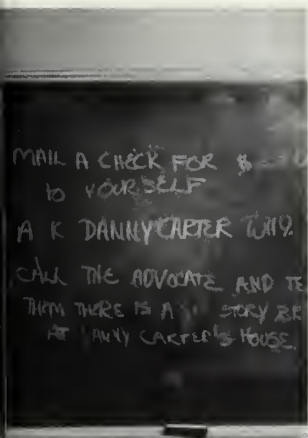 MAIL A CHECK FOR $
to YOURSELF
A K DANNY CARTER WHY.
CALL THE ADVOCATE AND TE
THEM THERE IS A STORY
AT ANNY CARTER'S HOUSE.